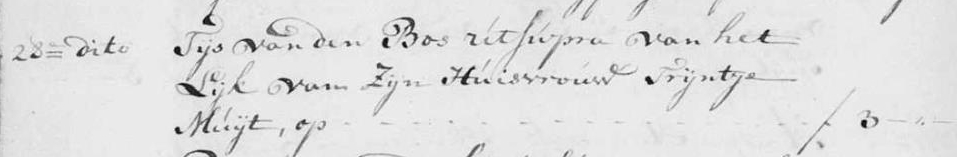 28=n dito Tÿs van den Bos ut supra van het
Lÿk van Zÿn Huisvrouw Trÿntge
Muÿt, op - - - - - - - - / 3 - " -